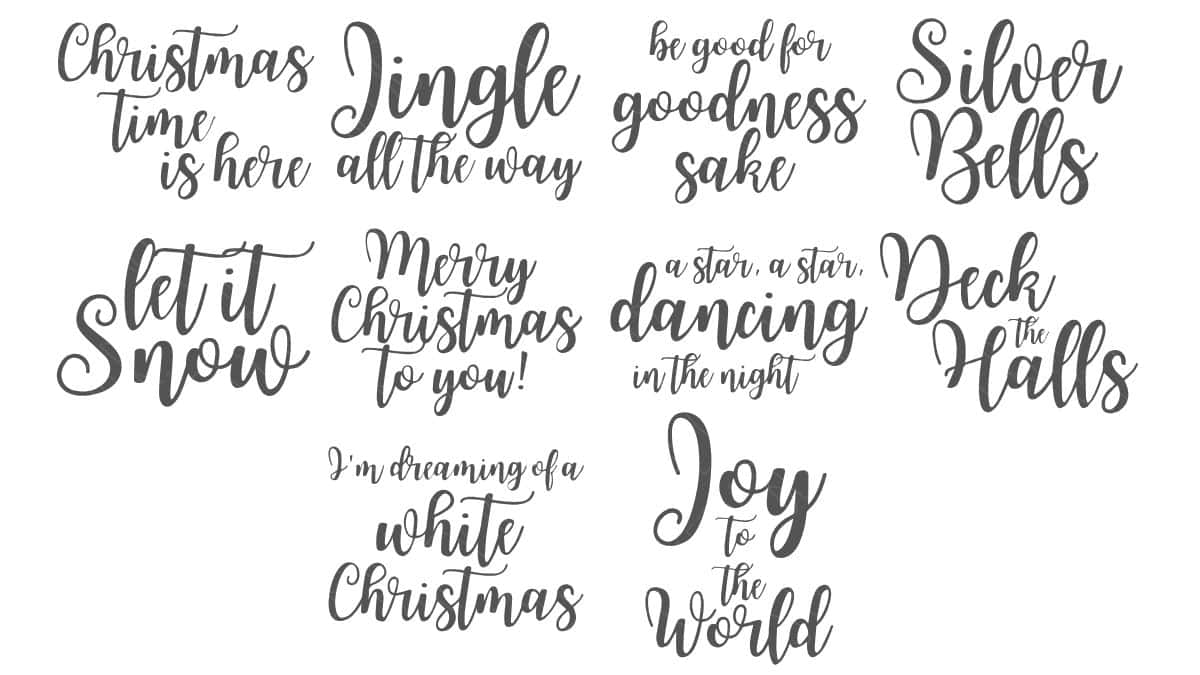 Christmas
time
is here
Jingle
all the way
be good for
goodness
sake
Silver
Bells
let it
Snow
Merry
Christmas
to you!
a star, a star,
dancing
in the night
Deck
the
Halls
I'm dreaming of a
white
Christmas
Joy
to
the
World